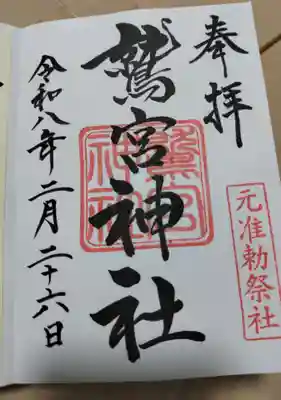 奉拝
元准勅祭社
鷲宮神社
鷲宮神社
令和八年二月二十六日